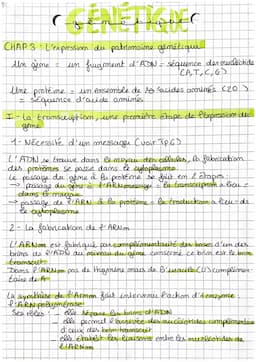 GÉNÉTIQUE
CHAP 3 : L'expression du patrimoine génétique
Un gène = un fragment d'ADN = séquence de nucléotide
(A,T,C,G)
Une protéine = un ensemble de acides aminés (20)
= séquence d'acide aminés
I - La transcription, une première étape de l'expression du
gène
1 - Nécessité d'un message (voir TP6)
L'ADN se trouve dans le noyau des cellules, la fabrication
des protéines se passe dans le cytoplasme
Le passage du gène à la protéine se fait en 2 étapes :
→ passage du gène à l'ARN message : la transcription a lieu
dans le noyau
→ passage de l'ARN à la protéine : la traduction a lieu de
le cytoplasme
2 - La fabrication de l'ARNm
L'ARNm est fabriqué par complémentarité des bases d'un des
brins de l'ADN au niveau du gène concerné ce brin est le brin
transcrit
Dans l'ARNm pas de thymine mais de l'uracile (U) complémen-
taire de A
La synthèse de l'ARNm fait intervenir l'action d'enzyme :
l'ARN polymérase
Ses rôles : - elle sépare les brins d'ADN
- elle permet l'associat de nucléotides complémentaire
d'un des brin transcrit
- elle établit les liaisons entre les nucléotides de
l'ARNm